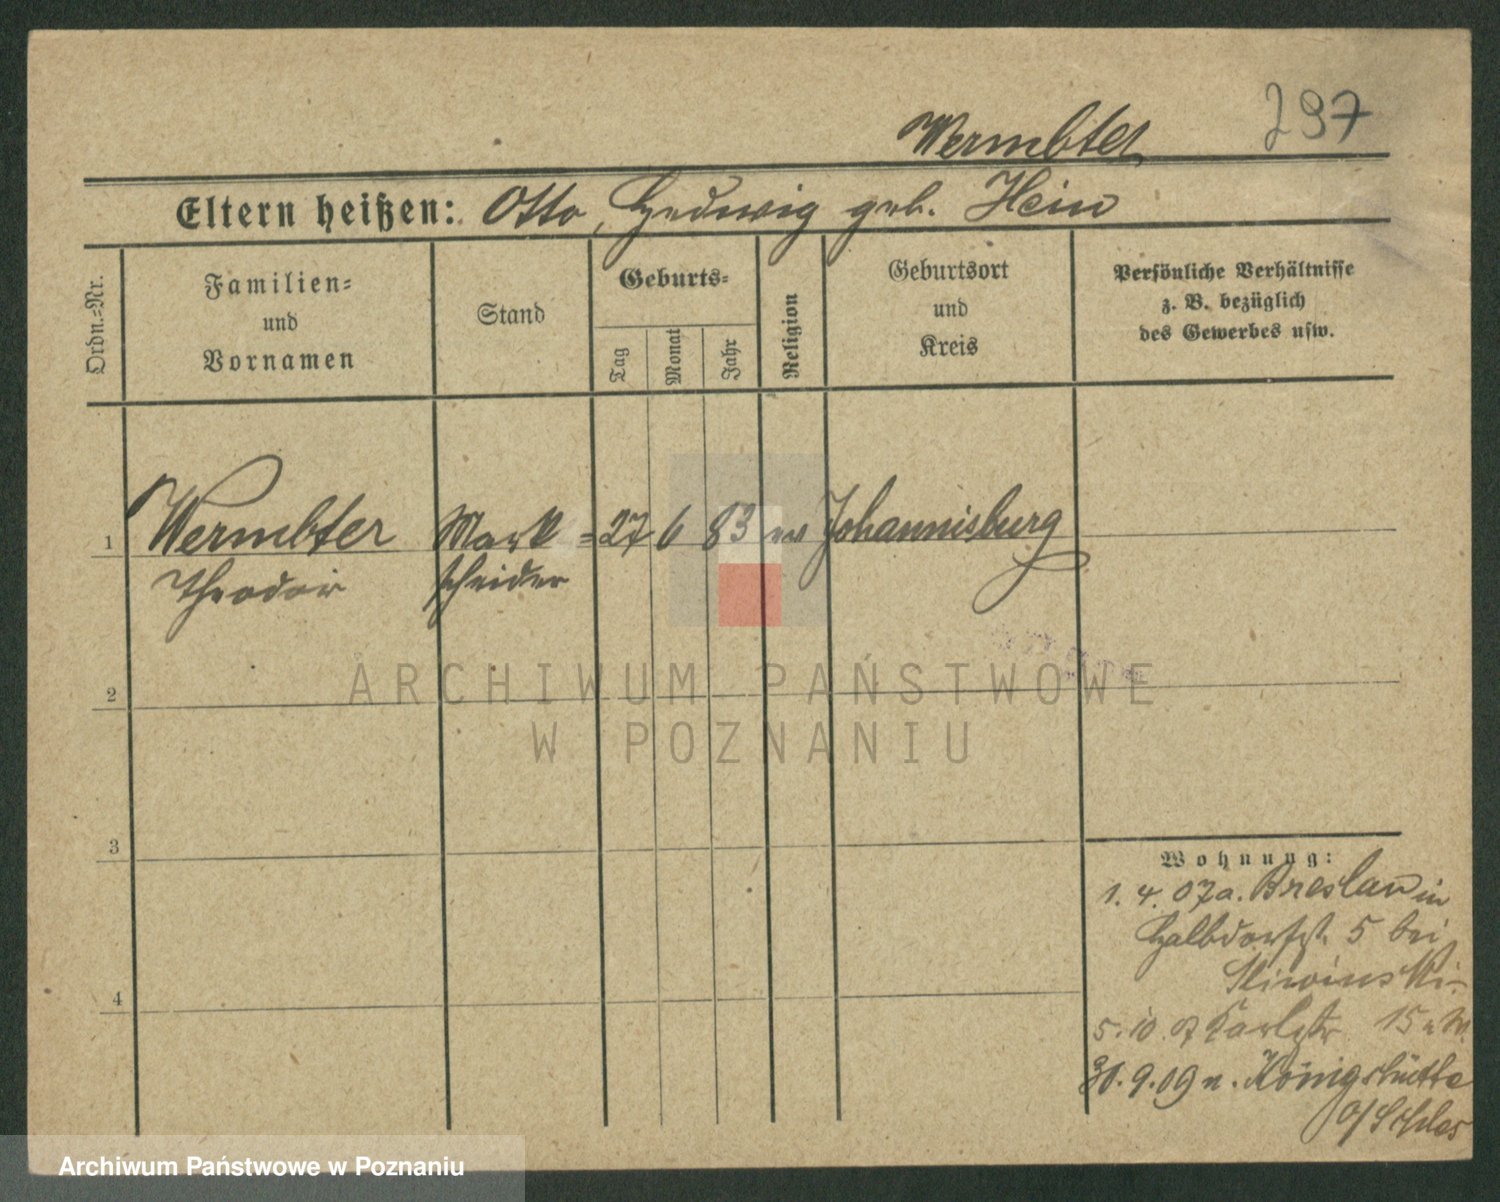 297
Wermbter
Eltern heißen: Otto, Hedwig geb. Hein
Ordn.=Nr.
Familien=
und
Vornamen
Stand
Geburts=
Tag
Monat
Jahr
Religion
Geburtsort
und
Kreis
Persönliche Verhältnisse
z. B. bezüglich
des Gewerbes usw.
1 Wermbter Mark= 27 6 83 ev Johannisburg
Theodor scheider
2
3
4
Wohnung:
1. 4. 07 a. Breslau in
Halbdorfst. 5 bei
Sliwinski
5. 10. 07 Karlstr 15
30. 9. 09 n. Königshütte
o/Schles
ARCHIWUM PAŃSTWOWE
W POZNANIU
Archiwum Państwowe w Poznaniu